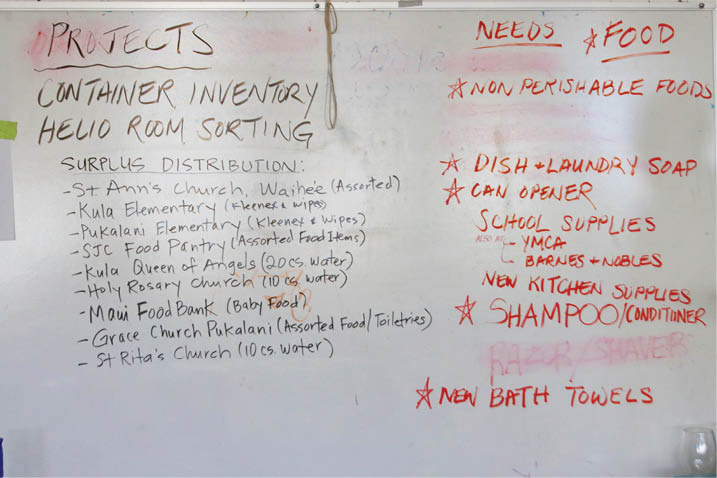 PROJECTS
CONTAINER INVENTORY
HELIO ROOM SORTING
SURPLUS DISTRIBUTION:
- St Ann's Church, Waihe'e (Assorted)
- Kula Elementary (Kleenex & Wipes)
- Pukalani Elementary (Kleenex & Wipes)
- SJC Food Pantry (Assorted Food Items)
- Kula Queen of Angels (20 cs. water)
- Holy Rosary Church (10 cs. water)
- Maui Food Bank (Baby Food)
- Grace Church Pukalani (Assorted Food/Toiletries)
- St Rita's Church (10 cs. water)
NEEDS ☆ FOOD
☆ NON PERISHABLE FOODS
☆ DISH + LAUNDRY SOAP
☆ CAN OPENER
SCHOOL SUPPLIES
ALSO AT - YMCA
- BARNES + NOBLES
NEW KITCHEN SUPPLIES
☆ SHAMPOO/CONDITIONER
RAZOR/SHAVER
☆ NEW BATH TOWELS